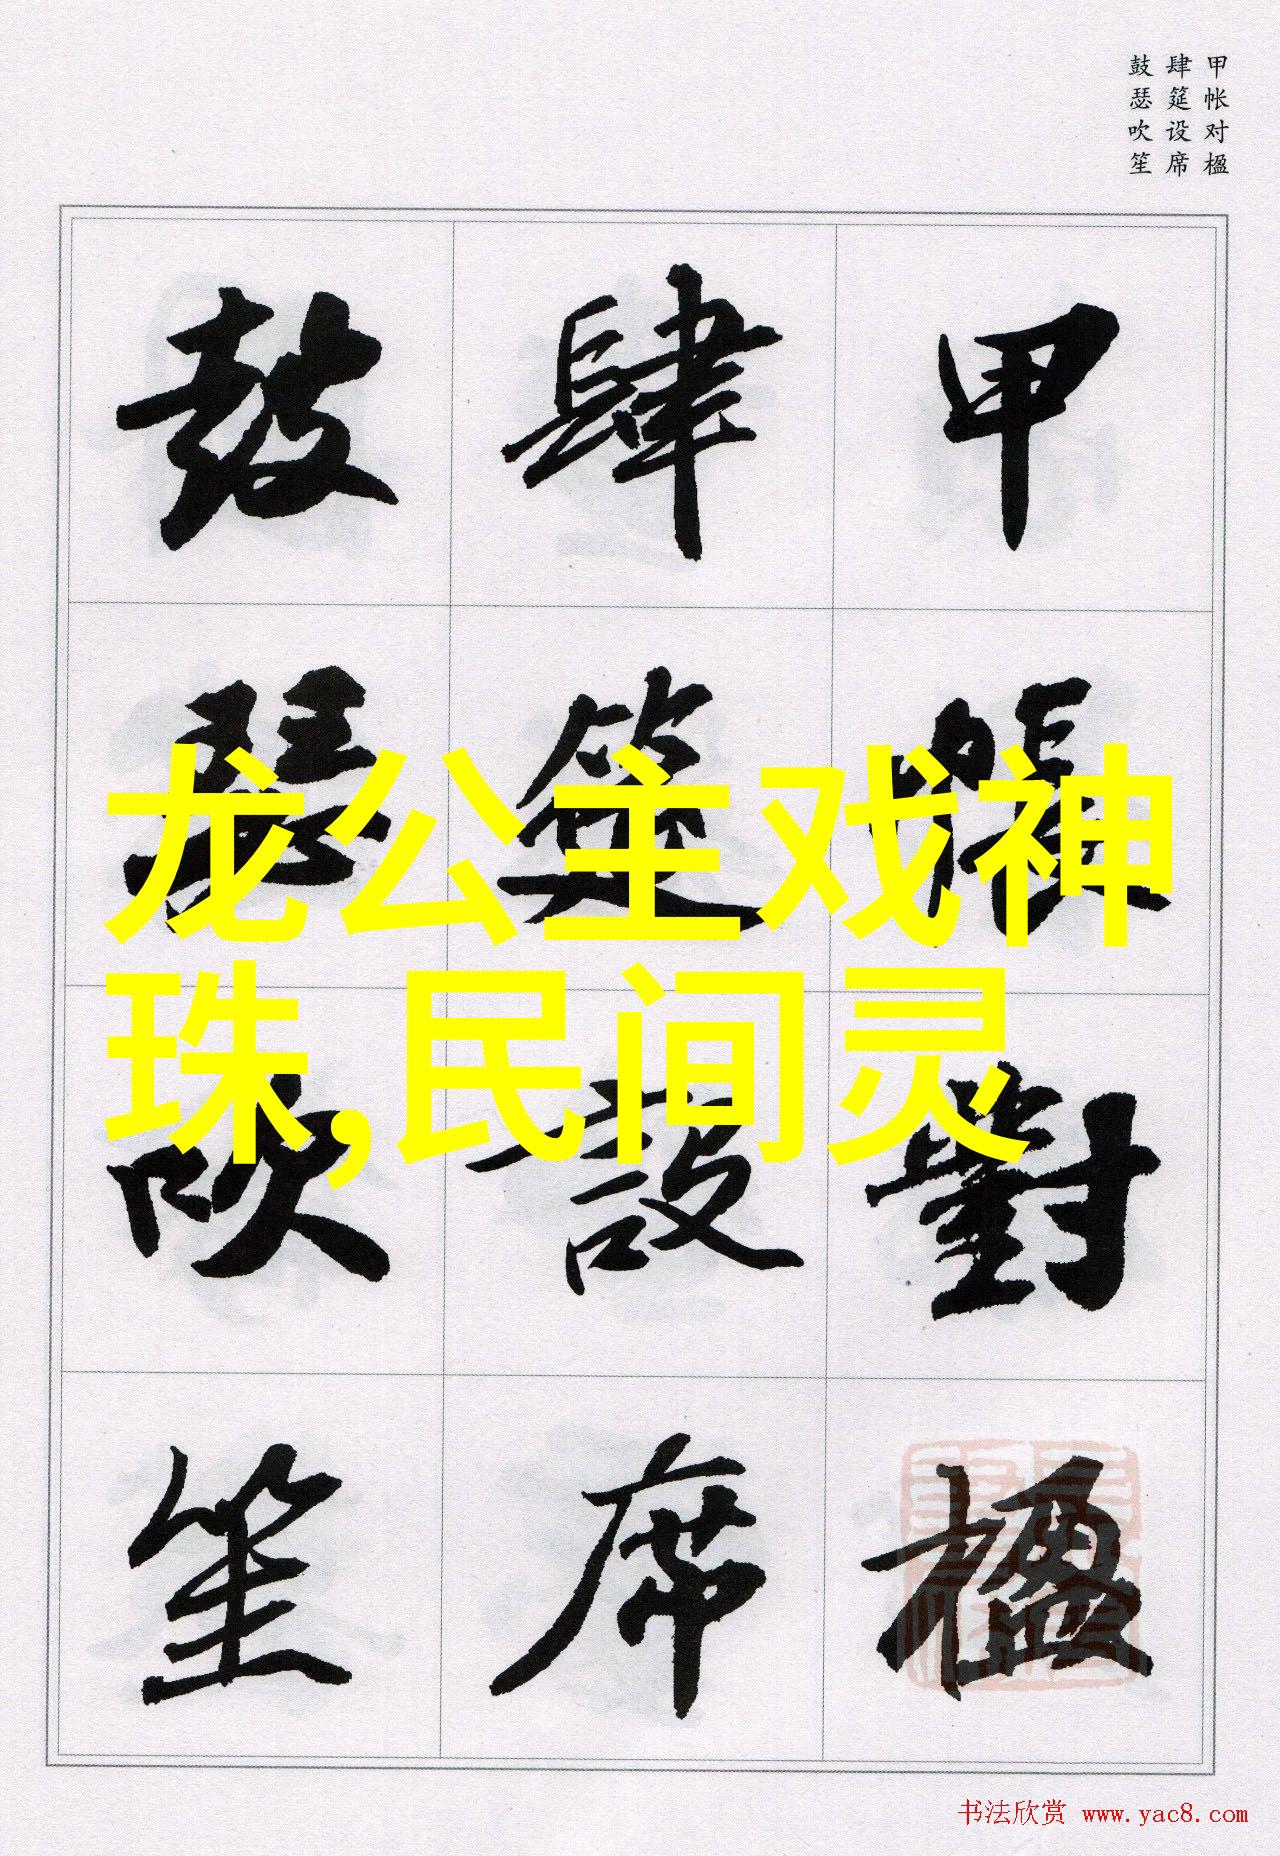 甲帐对楹
肆筵设席
鼓瑟吹笙
甲帳對楹
肆筵設席
鼓瑟吹笙
龙公主戏神
珠,民间灵
书法欣赏 www.yac8.com